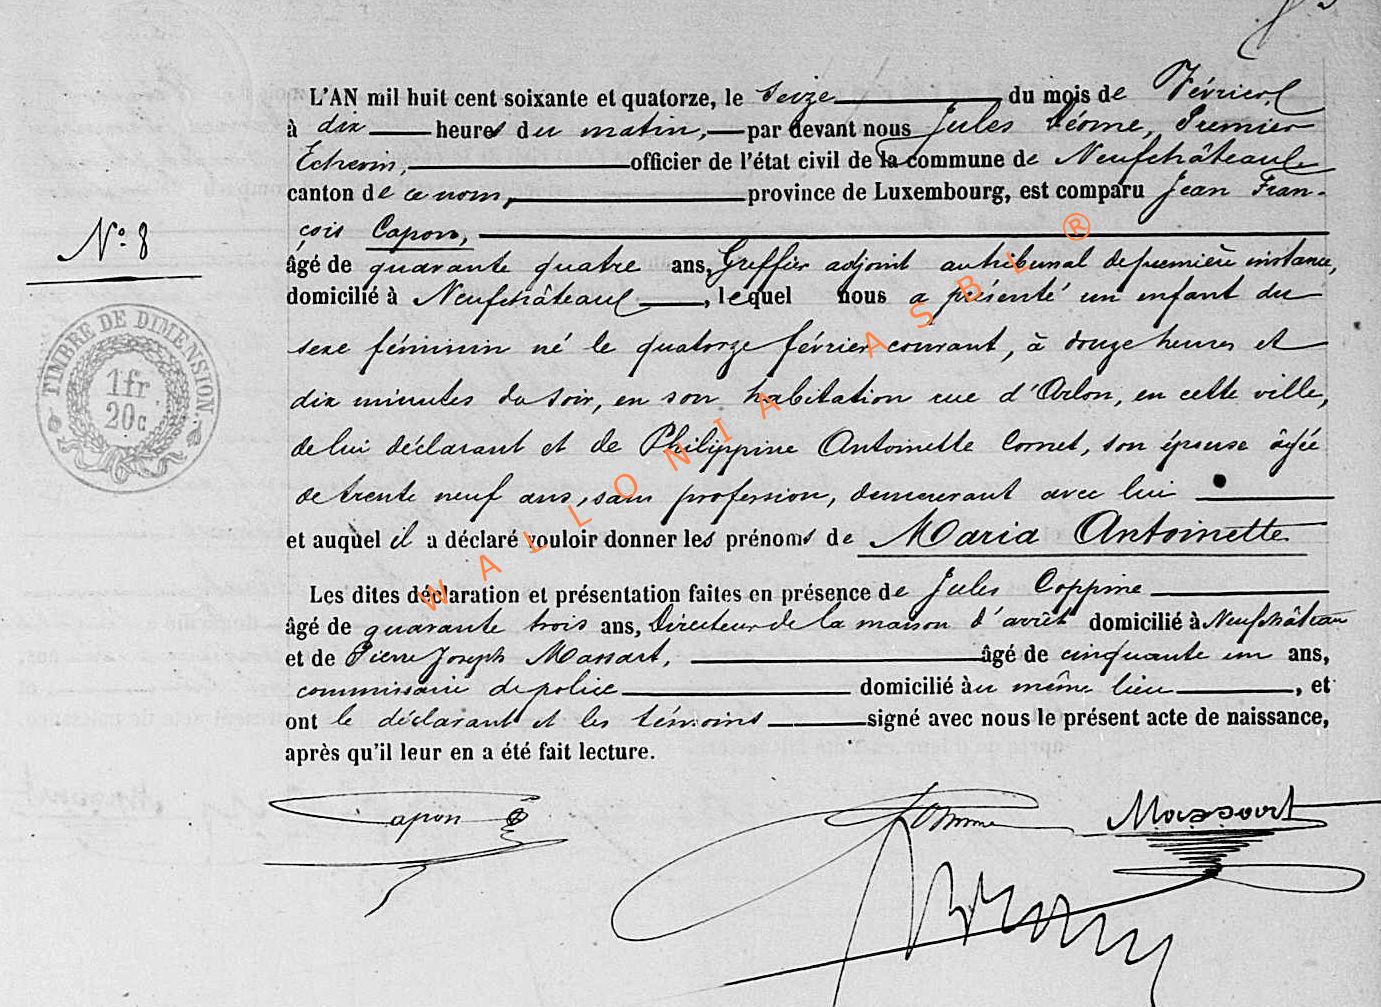 L'AN mil huit cent soixante et quatorze, le seize du mois de Février,
à dix heures du matin, par devant nous Jules Déome, Premier
Echevin, officier de l'état civil de la commune de Neufchâteau
canton de ce nom, province de Luxembourg, est comparu Jean Fran-
çois Capon,
N°. 8
âgé de quarante quatre ans, Greffier adjoint au tribunal de première instance,
domicilié à Neufchâteau, lequel nous a présenté un enfant du
sexe féminin né le quatorze février courant, à douze heures et
dix minutes du soir, en son habitation rue d'Arlon, en cette ville,
de lui déclarant et de Philippine Antoinette Cornet, son épouse âgée
de trente neuf ans, sans profession, demeurant avec lui
et auquel il a déclaré vouloir donner les prénoms de Maria Antoinette
Les dites déclaration et présentation faites en présence de Jules Coppine
âgé de quarante trois ans, Directeur de la maison d'arrêt domicilié à Neufchâteau
et de Pierre Joseph Massart, âgé de cinquante un ans,
commissaire de police domicilié au même lieu, et
ont le déclarant et les témoins signé avec nous le présent acte de naissance,
après qu'il leur en a été fait lecture.
TIMBRE DE DIMENSION.
1 fr.
20 c.
WALLONIA ASBL ®
Capon
Massart